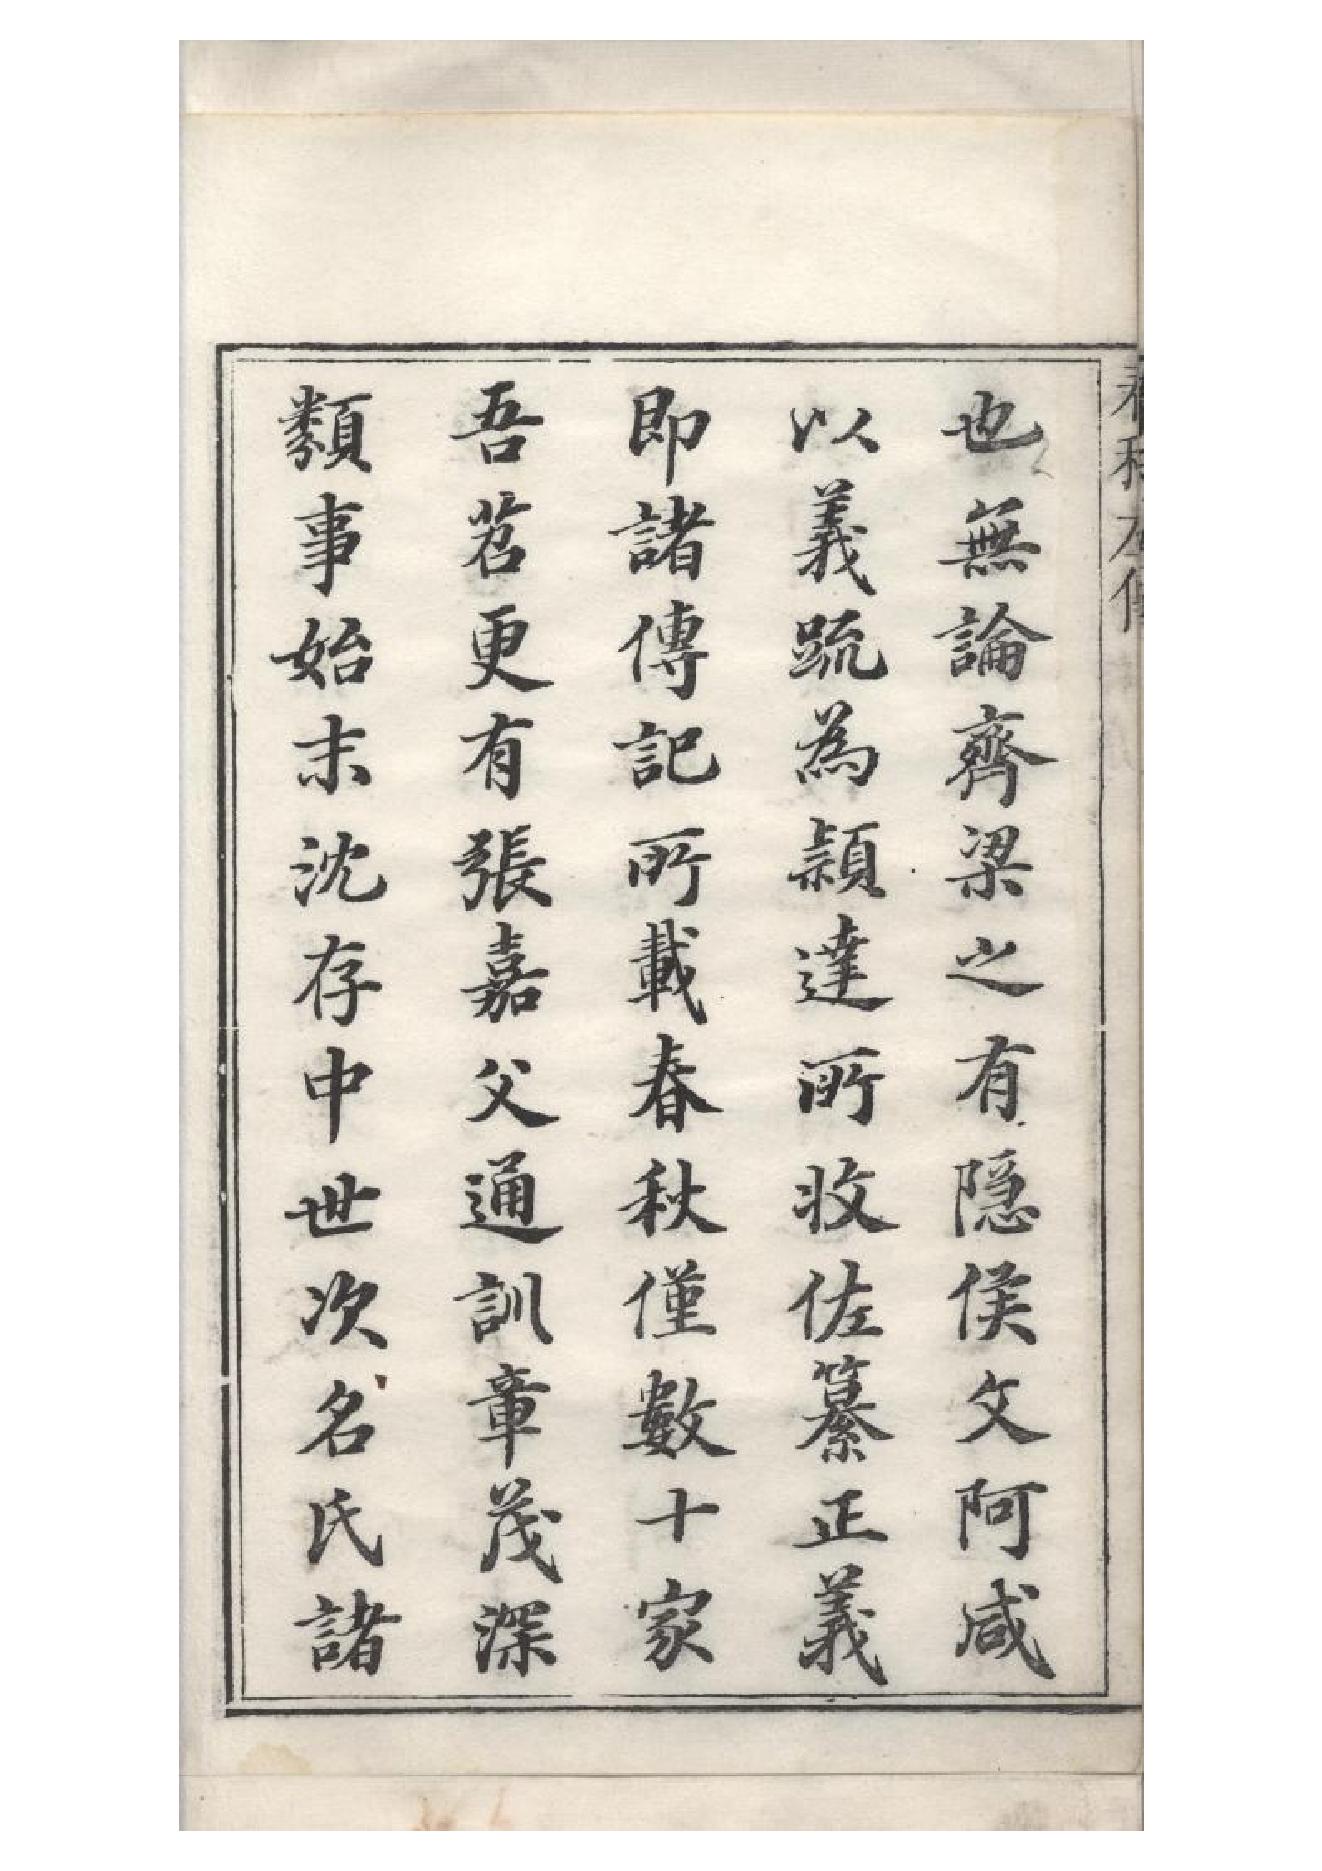 春秋左傳
也無論齊梁之有隱侯文阿咸
以義䟽為穎達所收佐纂正義
即諸傳記所載春秋僅數十家
吾笤更有張嘉父通訓章茂深
類事始末沈存中世次名氏諸